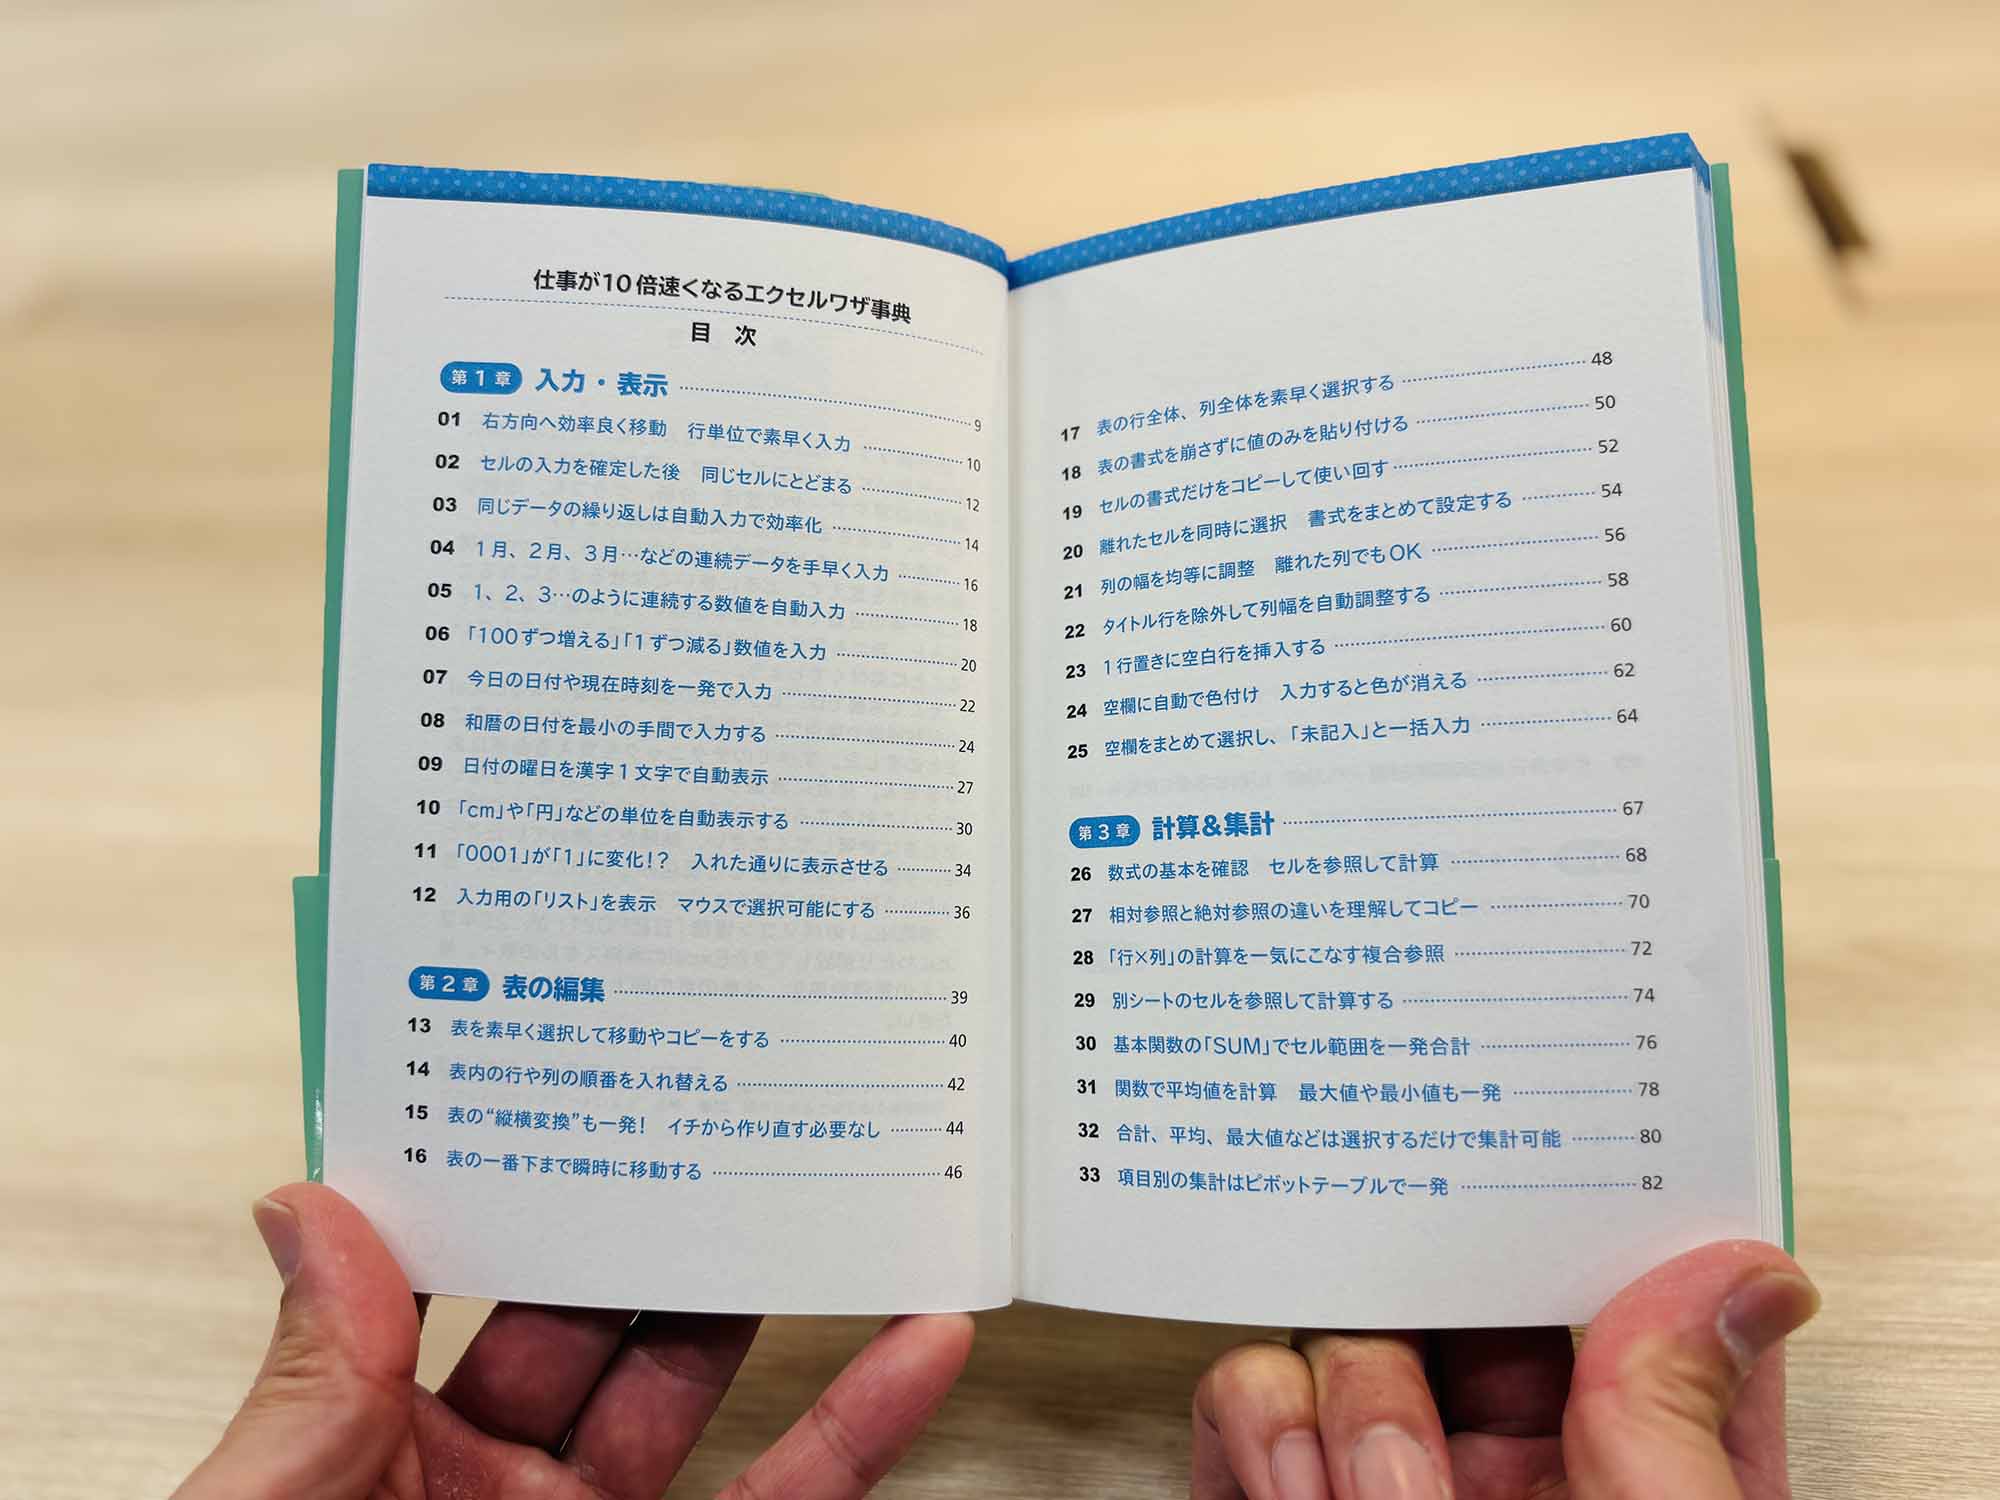 仕事が10倍速くなるエクセルワザ事典
目 次
第1章 入力・表示 9
01 右方向へ効率良く移動 行単位で素早く入力 10
02 セルの入力を確定した後 同じセルにとどまる 12
03 同じデータの繰り返しは自動入力で効率化 14
04 1月、2月、3月…などの連続データを手早く入力 16
05 1、2、3…のように連続する数値を自動入力 18
06 「100ずつ増える」「1ずつ減る」数値を入力 20
07 今日の日付や現在時刻を一発で入力 22
08 和暦の日付を最小の手間で入力する 24
09 日付の曜日を漢字1文字で自動表示 27
10 「cm」や「円」などの単位を自動表示する 30
11 「0001」が「1」に変化!? 入れた通りに表示させる 34
12 入力用の「リスト」を表示 マウスで選択可能にする 36
第2章 表の編集 39
13 表を素早く選択して移動やコピーをする 40
14 表内の行や列の順番を入れ替える 42
15 表の“縦横変換”も一発! イチから作り直す必要なし 44
16 表の一番下まで瞬時に移動する 46
17 表の行全体、列全体を素早く選択する 48
18 表の書式を崩さずに値のみを貼り付ける 50
19 セルの書式だけをコピーして使い回す 52
20 離れたセルを同時に選択 書式をまとめて設定する 54
21 列の幅を均等に調整 離れた列でもOK 56
22 タイトル行を除外して列幅を自動調整する 58
23 1行置きに空白行を挿入する 60
24 空欄に自動で色付け 入力すると色が消える 62
25 空欄をまとめて選択し、「未記入」と一括入力 64
第3章 計算&集計 67
26 数式の基本を確認 セルを参照して計算 68
27 相対参照と絶対参照の違いを理解してコピー 70
28 「行×列」の計算を一気にこなす複合参照 72
29 別シートのセルを参照して計算する 74
30 基本関数の「SUM」でセル範囲を一発合計 76
31 関数で平均値を計算 最大値や最小値も一発 78
32 合計、平均、最大値などは選択するだけで集計可能 80
33 項目別の集計はピボットテーブルで一発 82